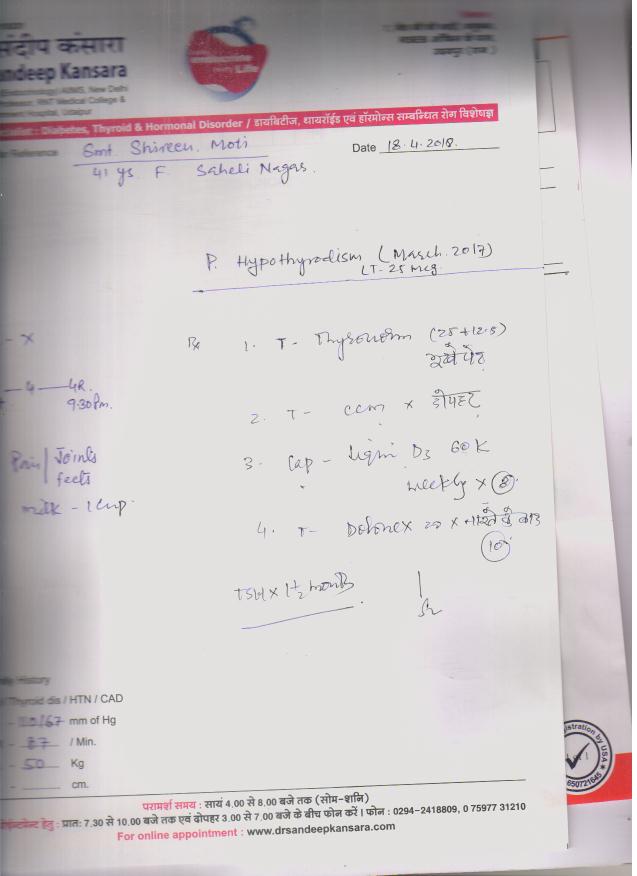 संदीप कंसारा
andeep Kansara
(Biotechnology) AIIMS, New Delhi
RNT Medical College &
Hospital, Udaipur
Life
: Diabetes, Thyroid & Hormonal Disorder / डायबिटीज, थायरॉईड एवं हॉरमोन्स सम्बन्धित रोग विशेषज्ञ
Reference Smt. Shireen Moti
Date 18.4.2018.
41 ys F. Saheli Nagar.
P. Hypothyrodism (March. 2017)
LT-25 mcg.
- x
Rx 1. T- Thyronorm (25+12.5)
भूखे पेट
4 4R.
9:30 Pm.
2. T- ccm x दोपहर
Pain/Joints
feets
3. Cap - D3 60K
weekly x 8
milk - 1 cup
4. T- Defonex 20 x नाश्ते के बाद
10
TSH x 1 1/2 months
History
Thyroid dis / HTN / CAD
/67 mm of Hg
- 87 / Min.
- 50 Kg
- cm.
istration by USA
650721645
परामर्श समय : सायं 4.00 से 8.00 बजे तक (सोम-शनि)
हेतु : प्रात: 7.30 से 10.00 बजे तक एवं दोपहर 3.00 से 7.00 बजे के बीच फोन करें । फोन : 0294-2418809, 0 75977 31210
For online appointment : www.drsandeepkansara.com